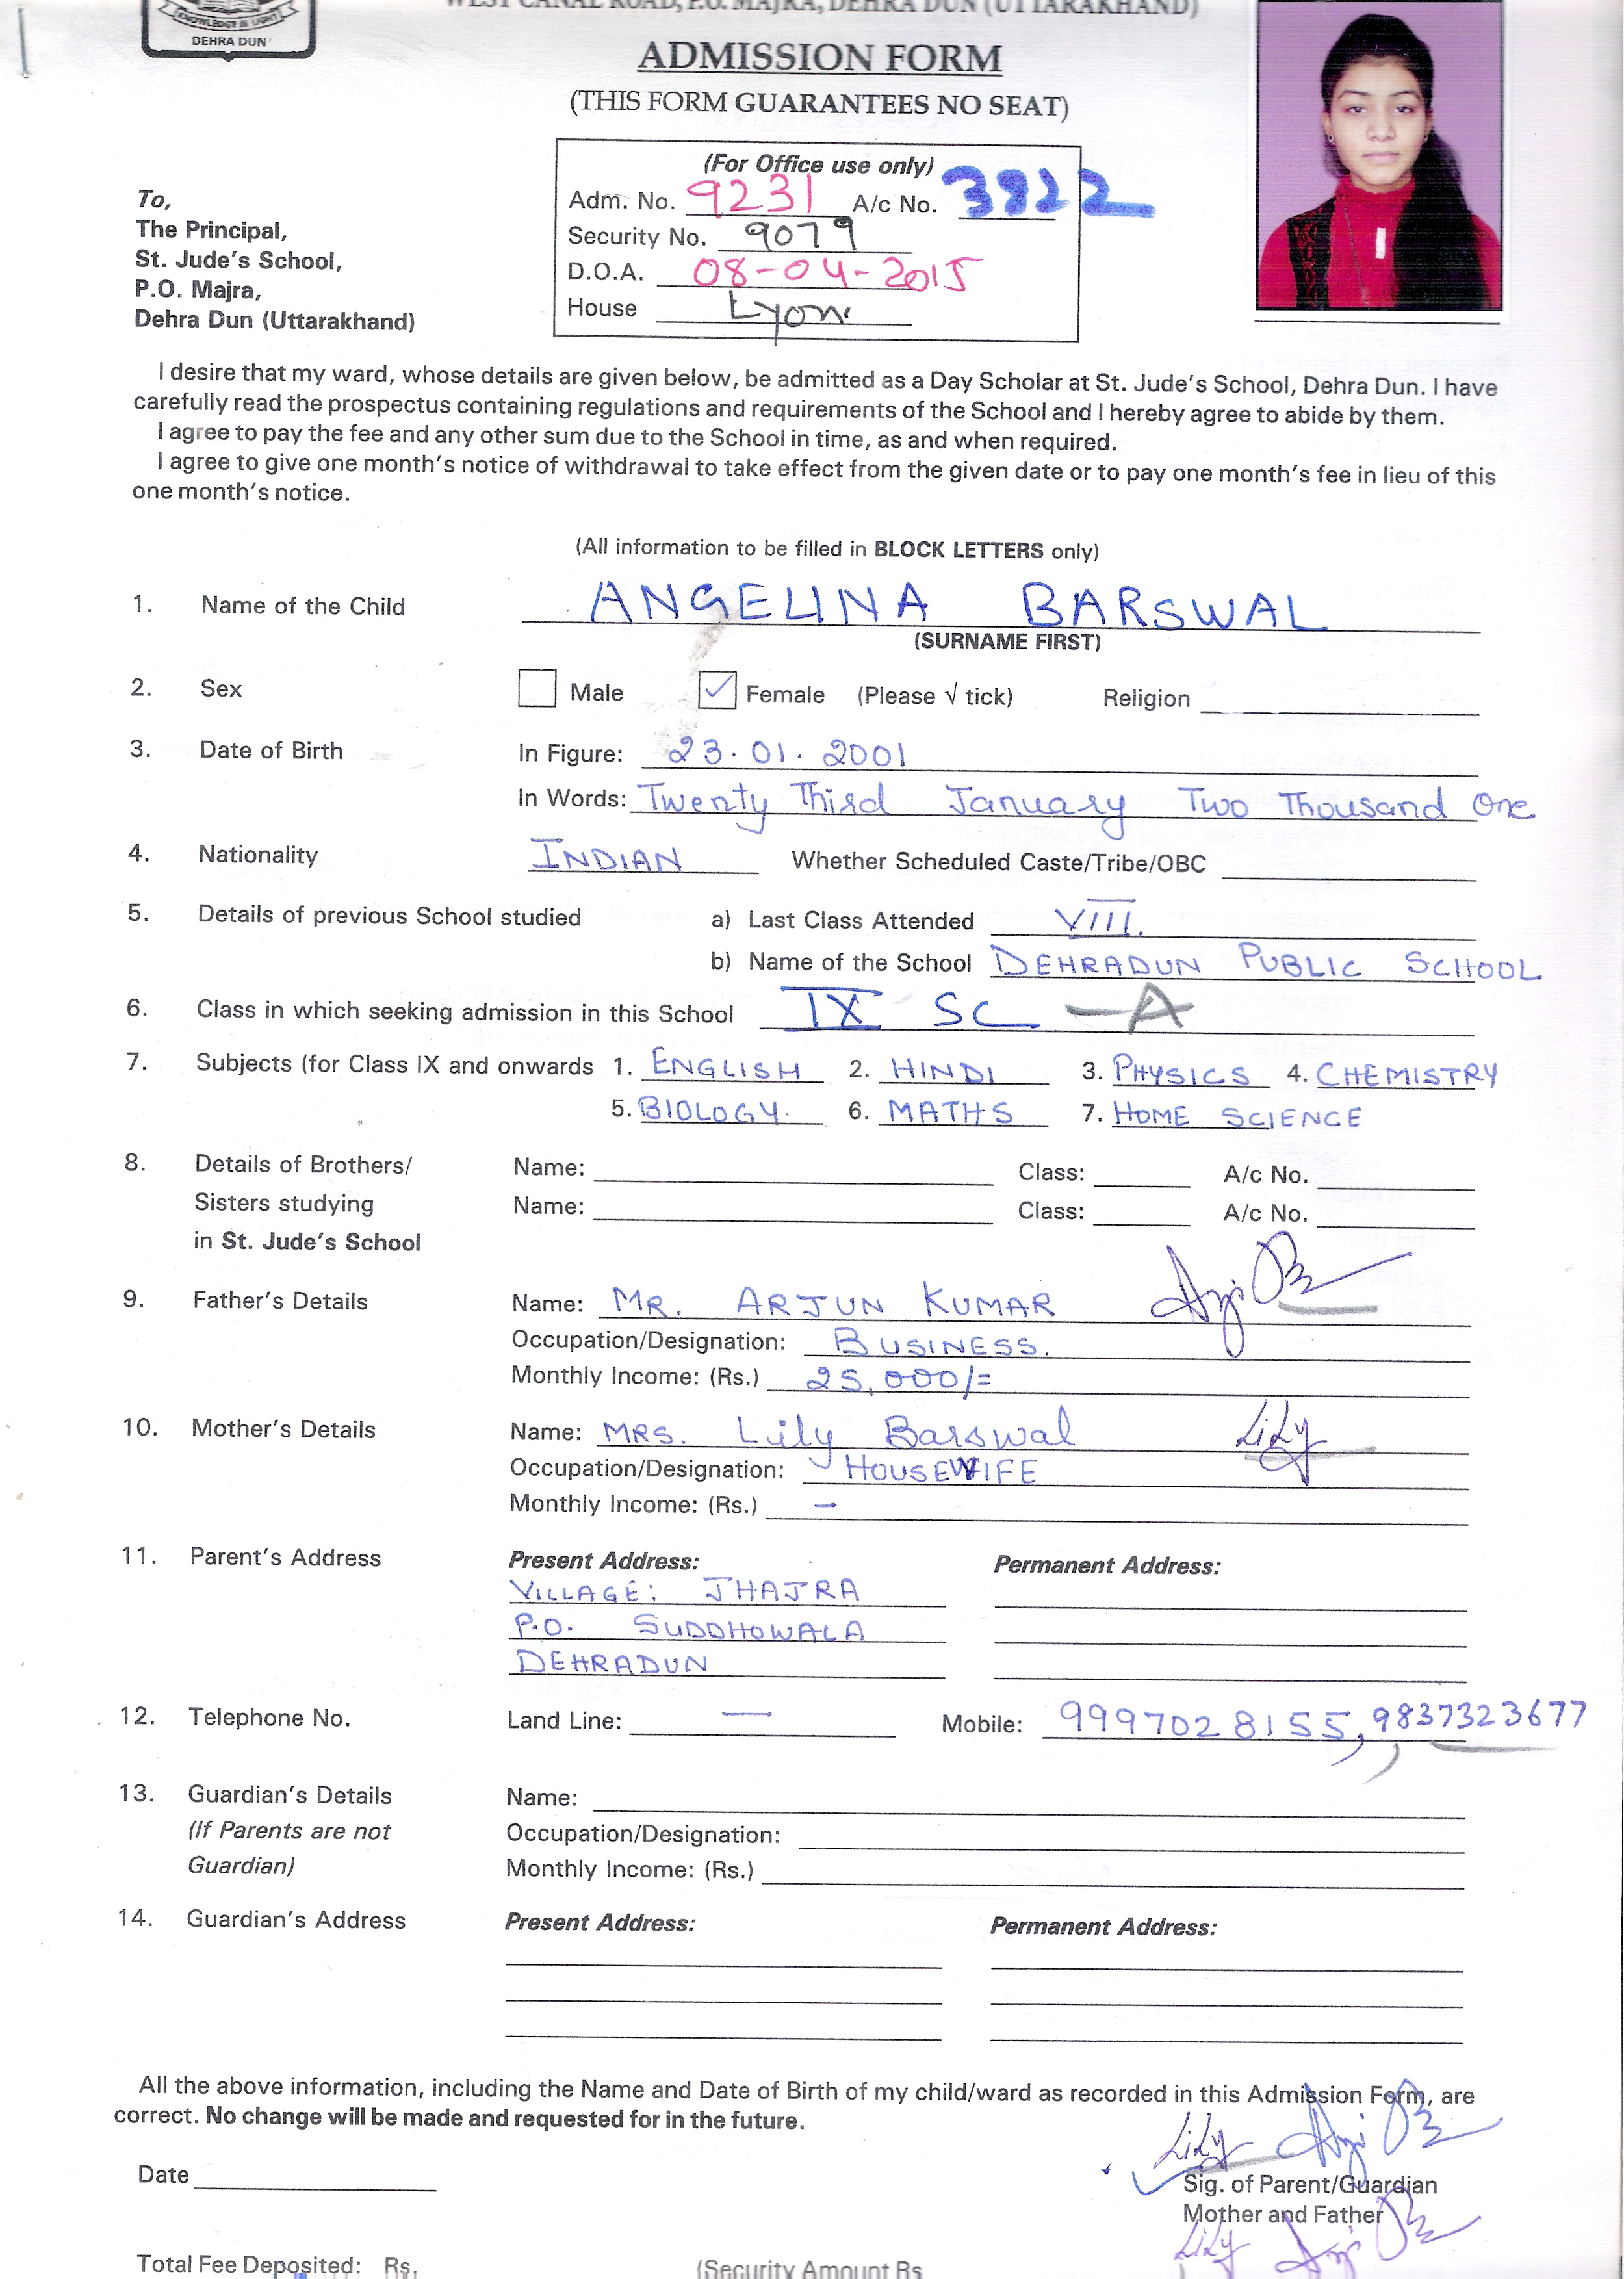 KNOWLEDGE IS LIGHT
DEHRA DUN
WEST CANAL ROAD, P.O. MAJRA, DEHRA DUN (UTTARAKHAND)
ADMISSION FORM
(THIS FORM GUARANTEES NO SEAT)
(For Office use only)
Adm. No. 9231 A/c No. 3822
Security No. 9079
D.O.A. 08-04-2015
House Lyon
To,
The Principal,
St. Jude's School,
P.O. Majra,
Dehra Dun (Uttarakhand)
I desire that my ward, whose details are given below, be admitted as a Day Scholar at St. Jude's School, Dehra Dun. I have
carefully read the prospectus containing regulations and requirements of the School and I hereby agree to abide by them.
I agree to pay the fee and any other sum due to the School in time, as and when required.
I agree to give one month's notice of withdrawal to take effect from the given date or to pay one month's fee in lieu of this
one month's notice.
(All information to be filled in BLOCK LETTERS only)
1. Name of the Child ANGELINA BARSWAL
(SURNAME FIRST)
2. Sex Male ✓ Female (Please √ tick) Religion
3. Date of Birth In Figure: 23.01.2001
In Words: Twenty Third January Two Thousand One
4. Nationality INDIAN Whether Scheduled Caste/Tribe/OBC
5. Details of previous School studied a) Last Class Attended VIII.
b) Name of the School DEHRADUN PUBLIC SCHOOL
6. Class in which seeking admission in this School IX SC -A
7. Subjects (for Class IX and onwards 1. ENGLISH 2. HINDI 3. PHYSICS 4. CHEMISTRY
5. BIOLOGY. 6. MATHS 7. HOME SCIENCE
8. Details of Brothers/ Name: Class: A/c No.
Sisters studying Name: Class: A/c No.
in St. Jude's School
9. Father's Details Name: MR. ARJUN KUMAR
Occupation/Designation: BUSINESS.
Monthly Income: (Rs.) 25,000/=
10. Mother's Details Name: MRS. Lily Barswal Lily
Occupation/Designation: HOUSEWIFE
Monthly Income: (Rs.) –
11. Parent's Address Present Address: Permanent Address:
VILLAGE: JHAJRA
P.O. SUDDHOWALA
DEHRADUN
12. Telephone No. Land Line: — Mobile: 9997028155, 9837323677
13. Guardian's Details Name:
(If Parents are not Occupation/Designation:
Guardian) Monthly Income: (Rs.)
14. Guardian's Address Present Address: Permanent Address:
All the above information, including the Name and Date of Birth of my child/ward as recorded in this Admission Form, are
correct. No change will be made and requested for in the future.
Lily
Date Sig. of Parent/Guardian
Mother and Father
Lily
Total Fee Deposited: Rs. (Security Amount Rs